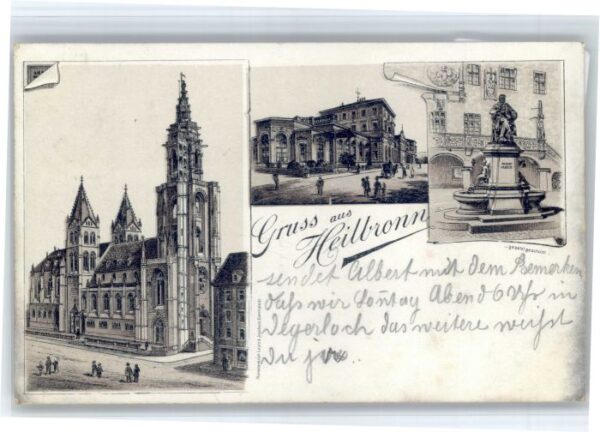 Gruss aus
Heilbronn
sendet Albert mit dem Bemerken
daß wir Sontag Abend 6 Uhr in
Degerloch das weitere weißt
Du ja.